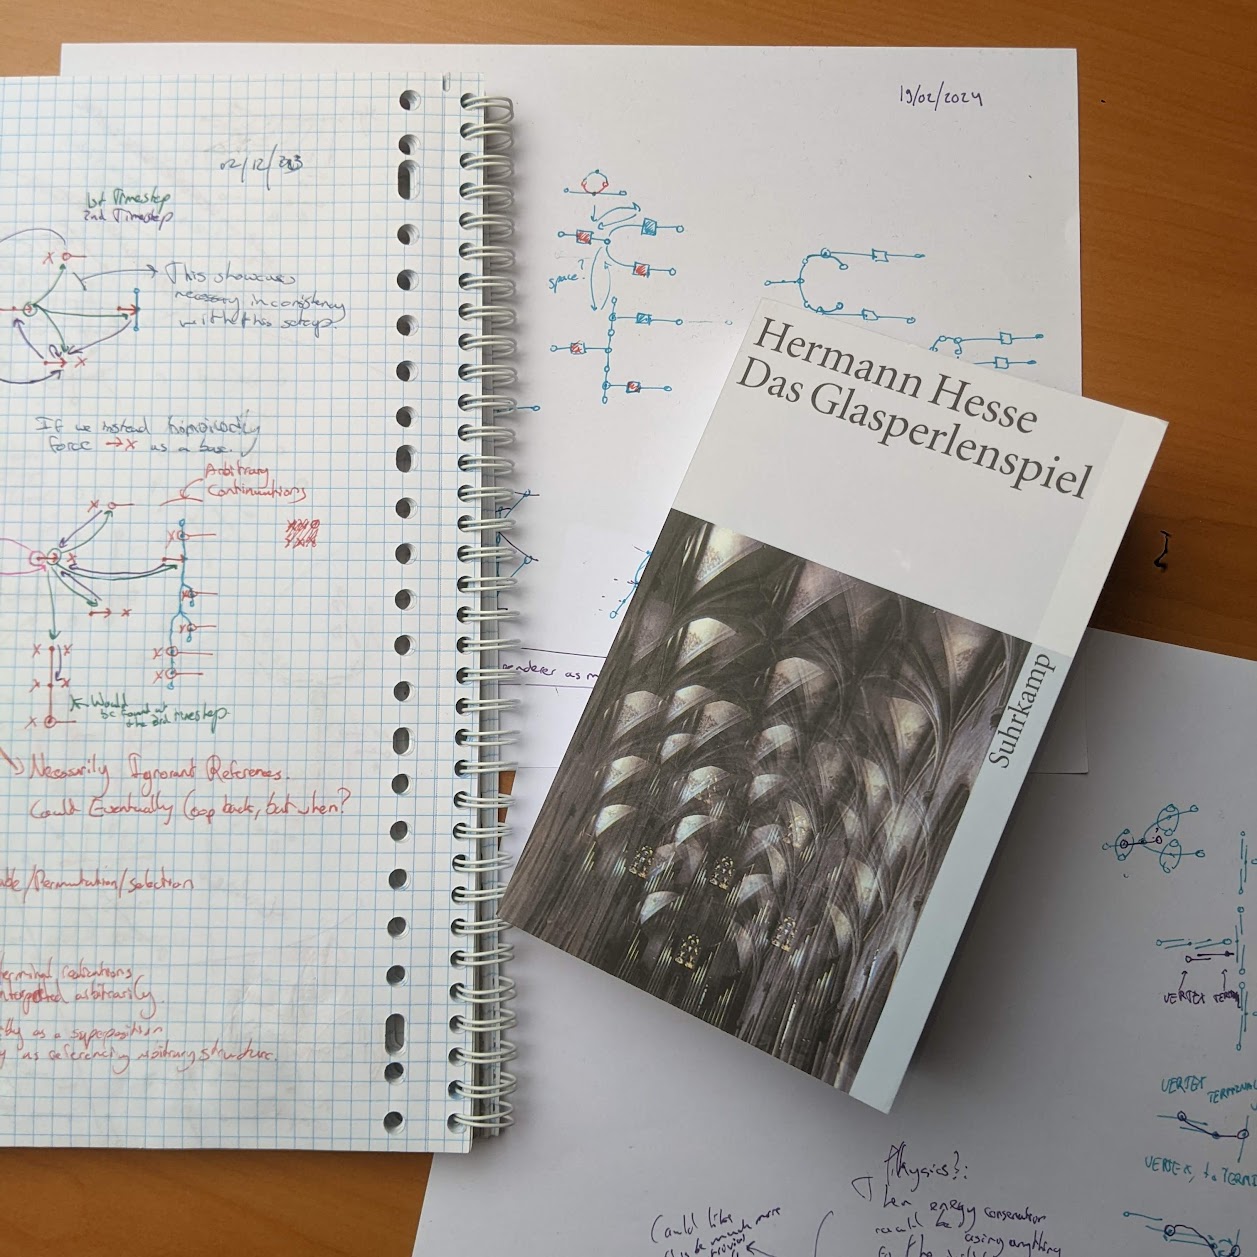 02/12/2023
1st Timestep
2nd Timestep
This showcases
necessary inconsistency
with this setup.
If we instead
force → x as a base.
Arbitrary
Continuations
Would
be found at
the 3rd timestep
Necessarily Ignorant References.
Could Eventually Loop back, but when?
/Permutation/selection
arbitrarily
as a superposition
as referencing arbitrary structure.
19/02/2024
space?
renderer as
Hermann Hesse
Das Glasperlenspiel
Suhrkamp
VERTEX
VERTEX TERMINAL
VERTEX
Physics?:
energy conservation
could be using anything
Could like
be much more
trivial